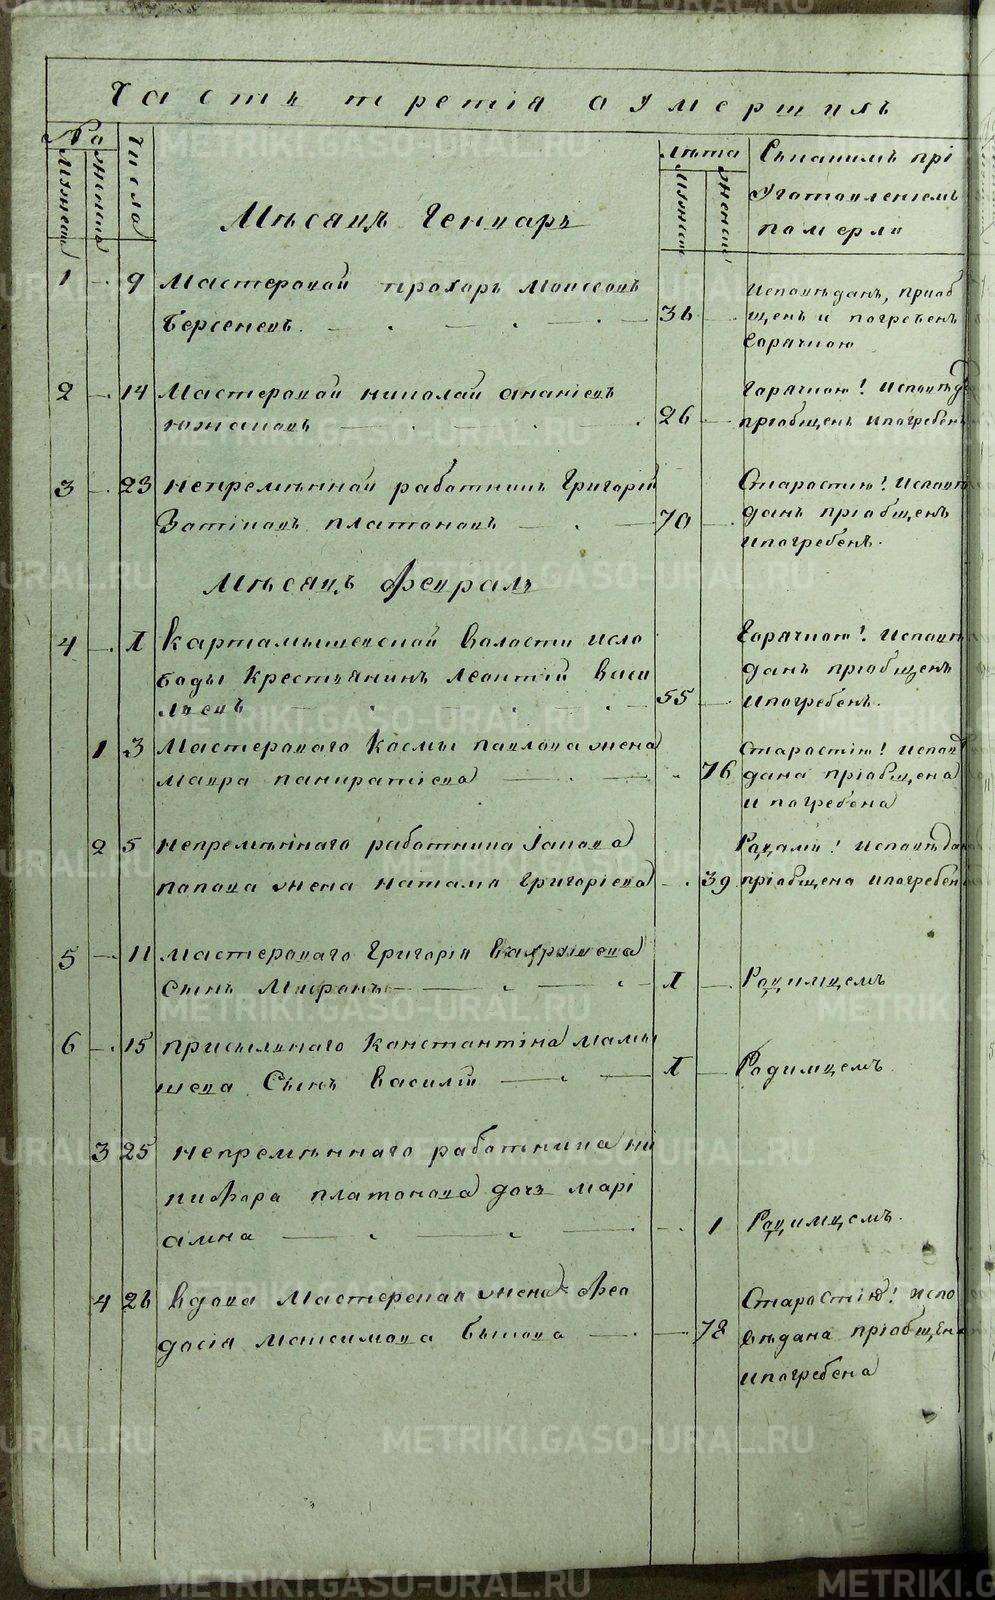 Часть третія о умершихъ
№
Мужеска
Женска
Числа
Мѣсяцъ Генварь
лѣта
Мужеск
Женск
Съ какимъ прі
уготовленіемъ
померли
1 9 Мастеровой Прохоръ Моисеевъ
Берсеневъ. 36
Исповѣданъ, приоб
щенъ и погребенъ
Горячкою
2 14 Мастеровой Николай Ананіевъ
Южаковъ 26
Горячкою! Исповѣда
пріобщенъ ипогребенъ
3 23 Непремѣнной работникъ Григорій
Платоновъ 70
Старостію! Исповѣ
данъ пріобщенъ
ипогребенъ.
Мѣсяцъ Февраль
4 1 Картамышевской Волости исло
боды Крестьянинъ Леонтій Васи
льевъ 55
Горячкою! Исповѣ
данъ пріобщенъ
ипогребенъ.
1 3 Мастероваго Космы Павлова жена
Мавра Панкратіева 76
Старостію! Исповѣ
дана пріобщена
и погребена
2 5 Непремѣннаго работника Іакова
Попова жена Наталія Григоріева 39
Родами! Исповѣдана
пріобщена ипогребен
5 11 Мастероваго Григорія Вахрошева
Сынъ Мифронъ 1
Родимцемъ
6 15 Присыльнаго Константіна Мамы
шева Сынъ Василій 1
Родимцемъ
3 25 Непремѣннаго работника Ни
кифора Платонова дочь Марі
амна 1
Родимцемъ.
4 26 Вдова Мастерская жена Фео
досія Максимова Быкова 78
Старостію! Испо
вѣдана пріобщена
ипогребена
METRIKI.GASO-URAL.RU